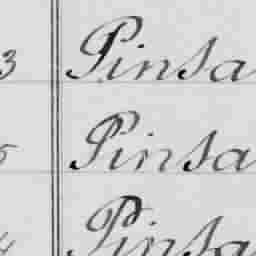 3 Pinsa
5 Pinsa
4 Pinsa